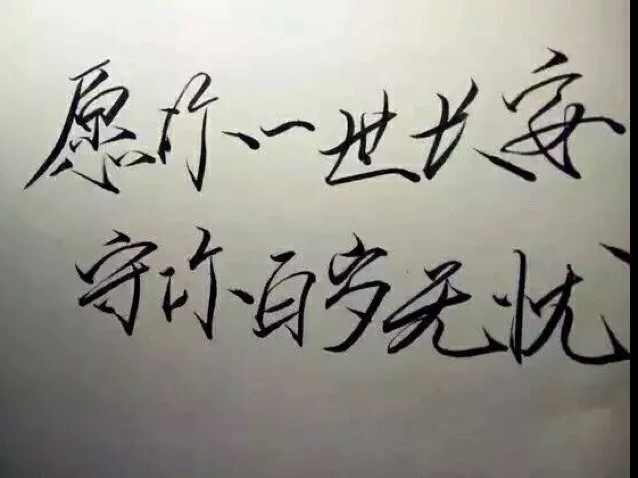 愿你一世长安
守你百岁无忧